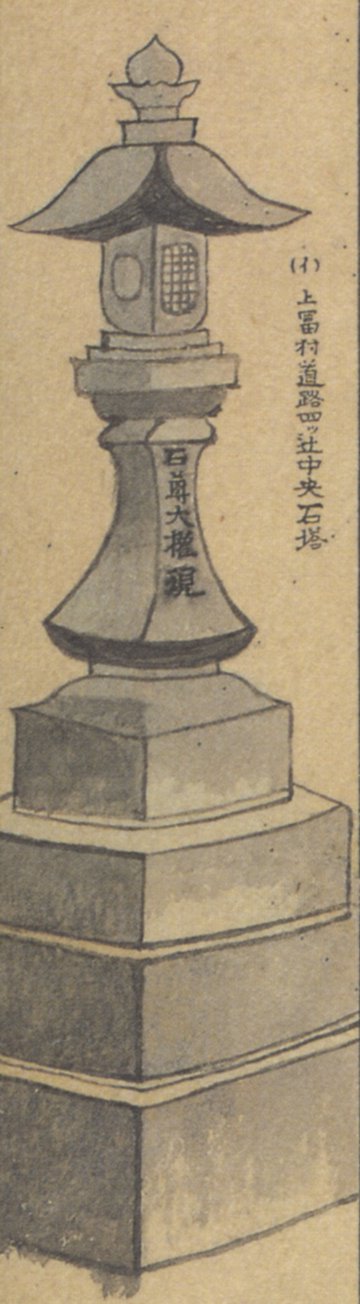 (イ) 上冨村道路四ッ辻中央石塔
石尊大權現